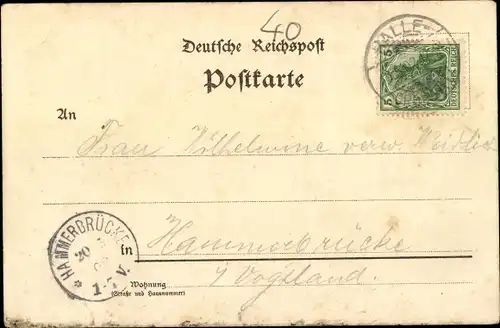 40
Deutsche Reichspost
Postkarte
HALLE
5 DEUTSCHES REICH
An
Frau Wilhelmine verw.
HAMMERBRÜCKE
20
1-7 V.
in Hammerbrücke
i/Vogtland.
Wohnung
(Straße und Hausnummer)